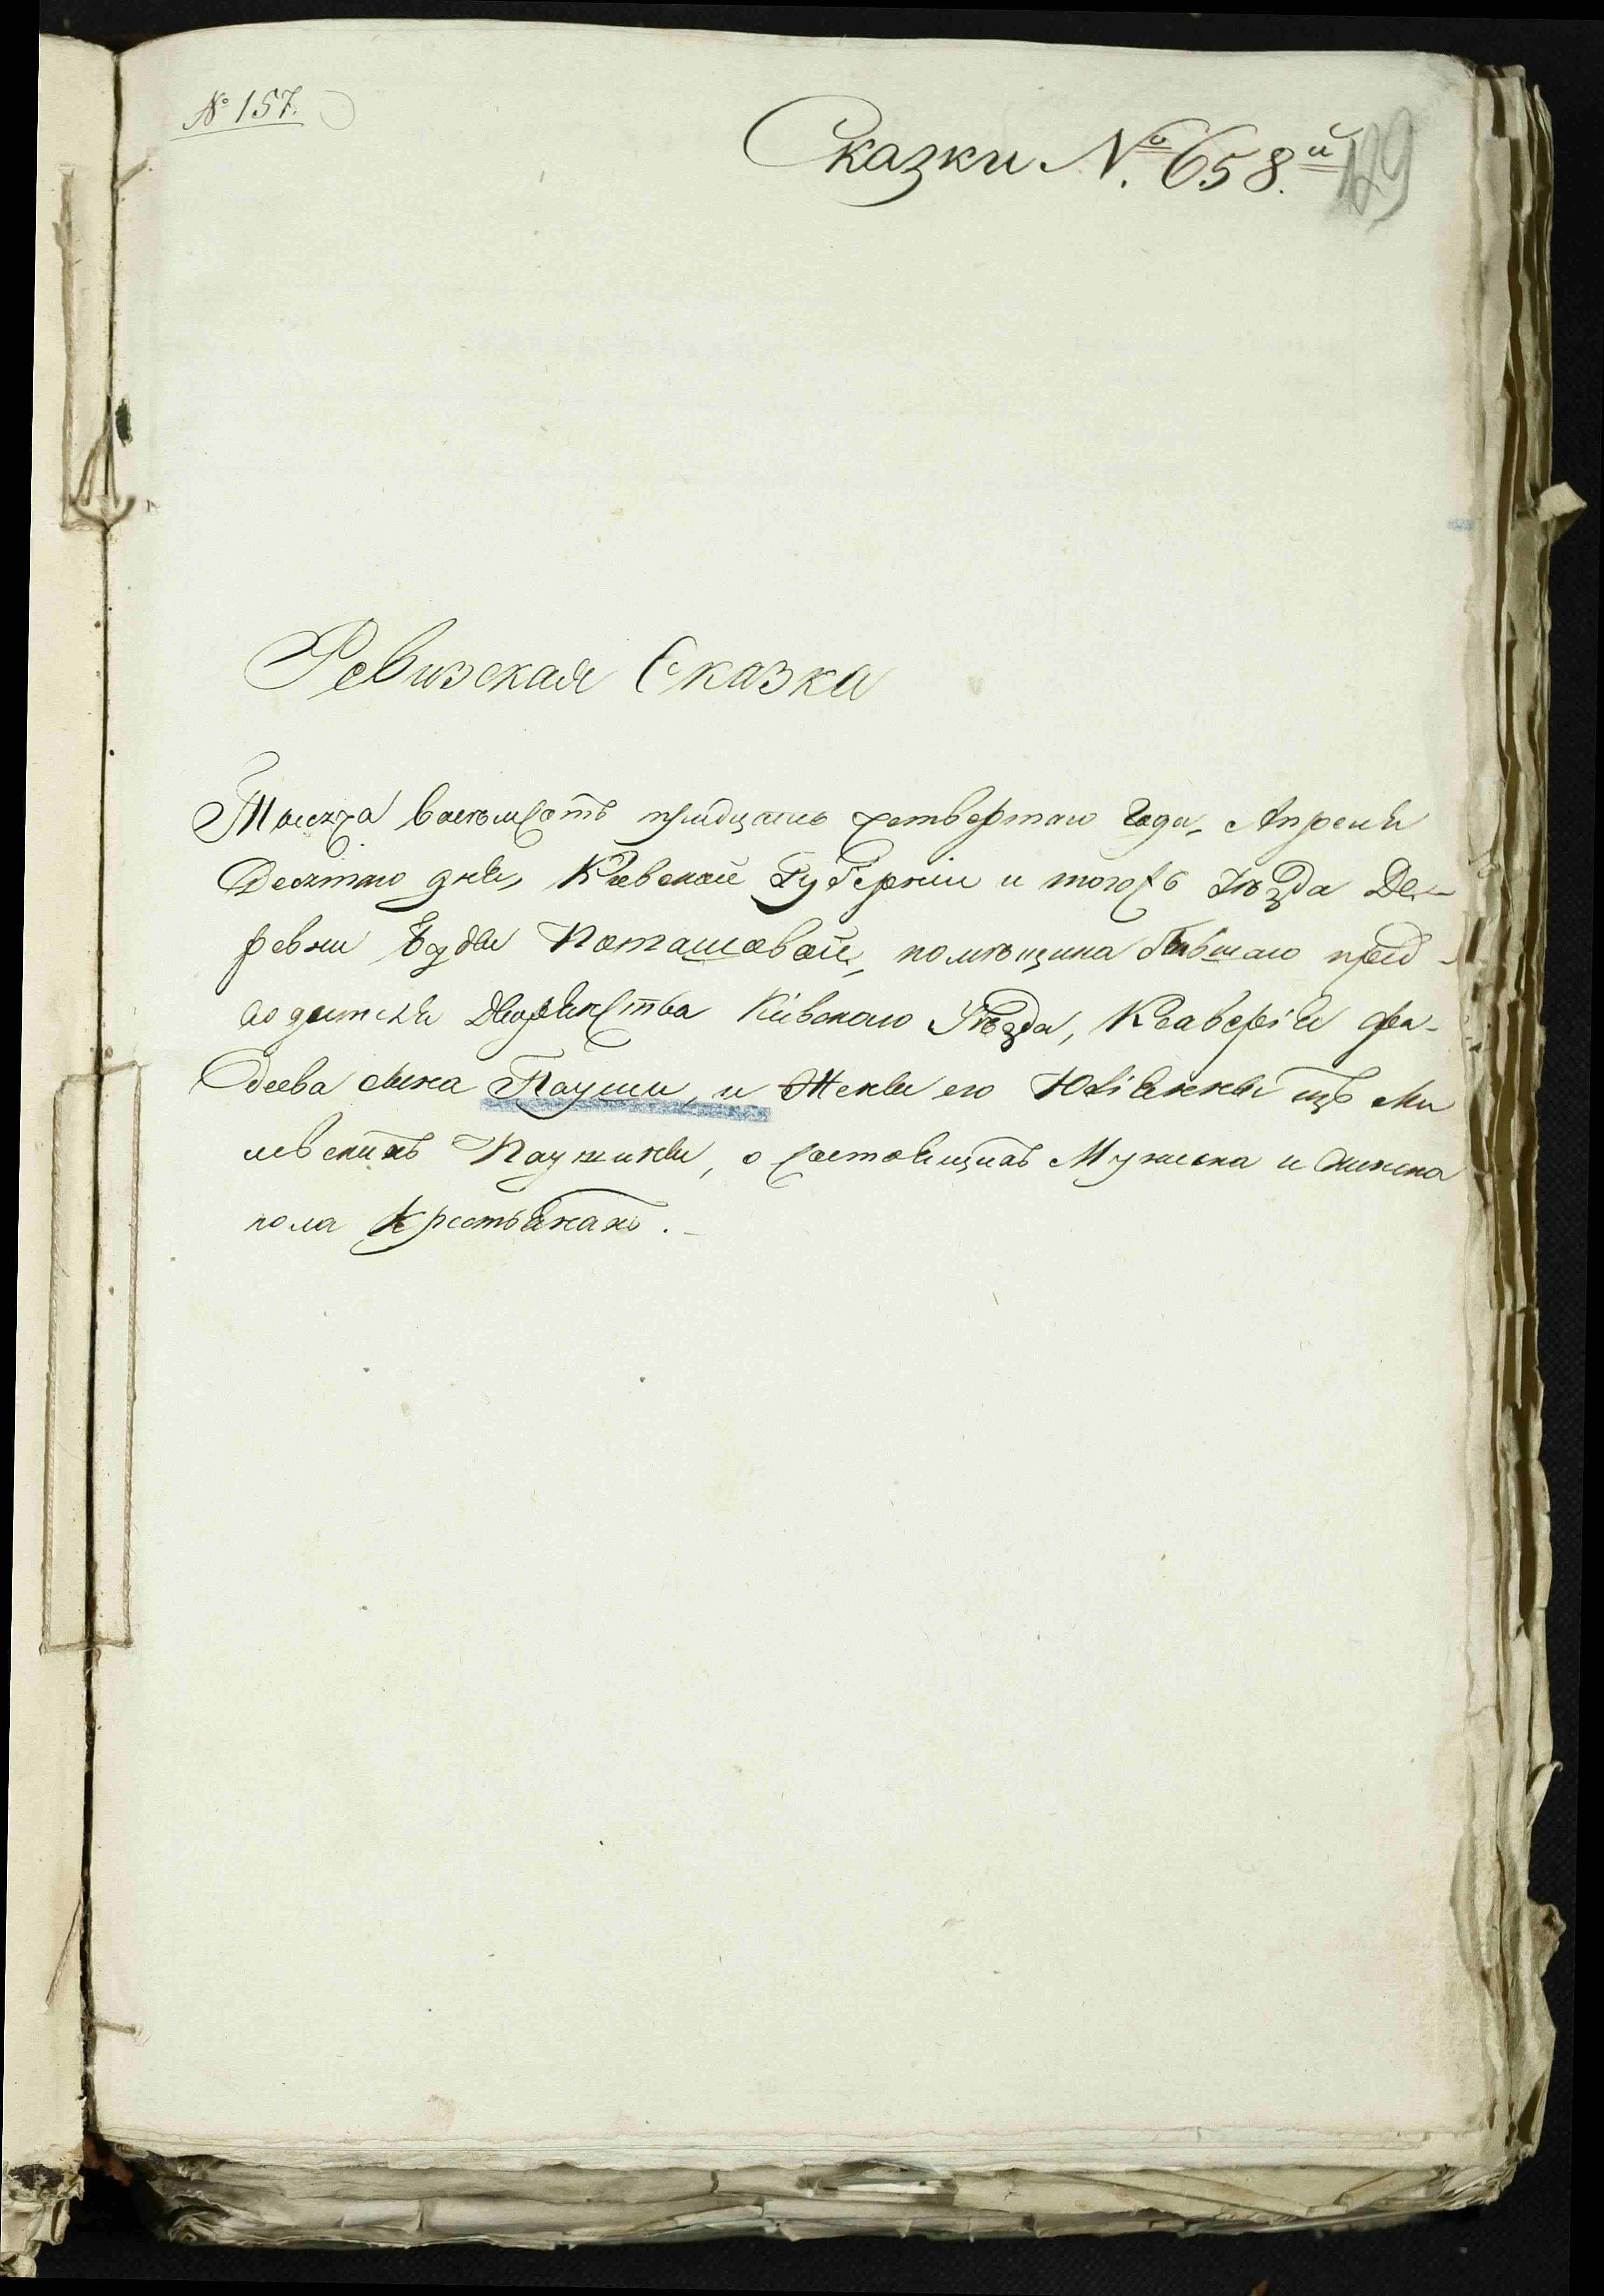 № 157.
Сказки №. 658.й
129
Ревизская Сказка
Тысяча восемьсотъ тридцать четвертаго года, Апреля
Десятаго дня, Кіевской Губерніи и тогожъ Уѣзда Де-
ревни Буды Поташовой, помѣщика бывшаго пред-
водителя Дворянства Кіевскаго Уѣзда, Ксаверія Фа-
деева сына Пауши, и Жены его Юліанны изъ Ми
левскихъ Паушины, о состоящихъ Мужеска и женска
пола Крестьянахъ.